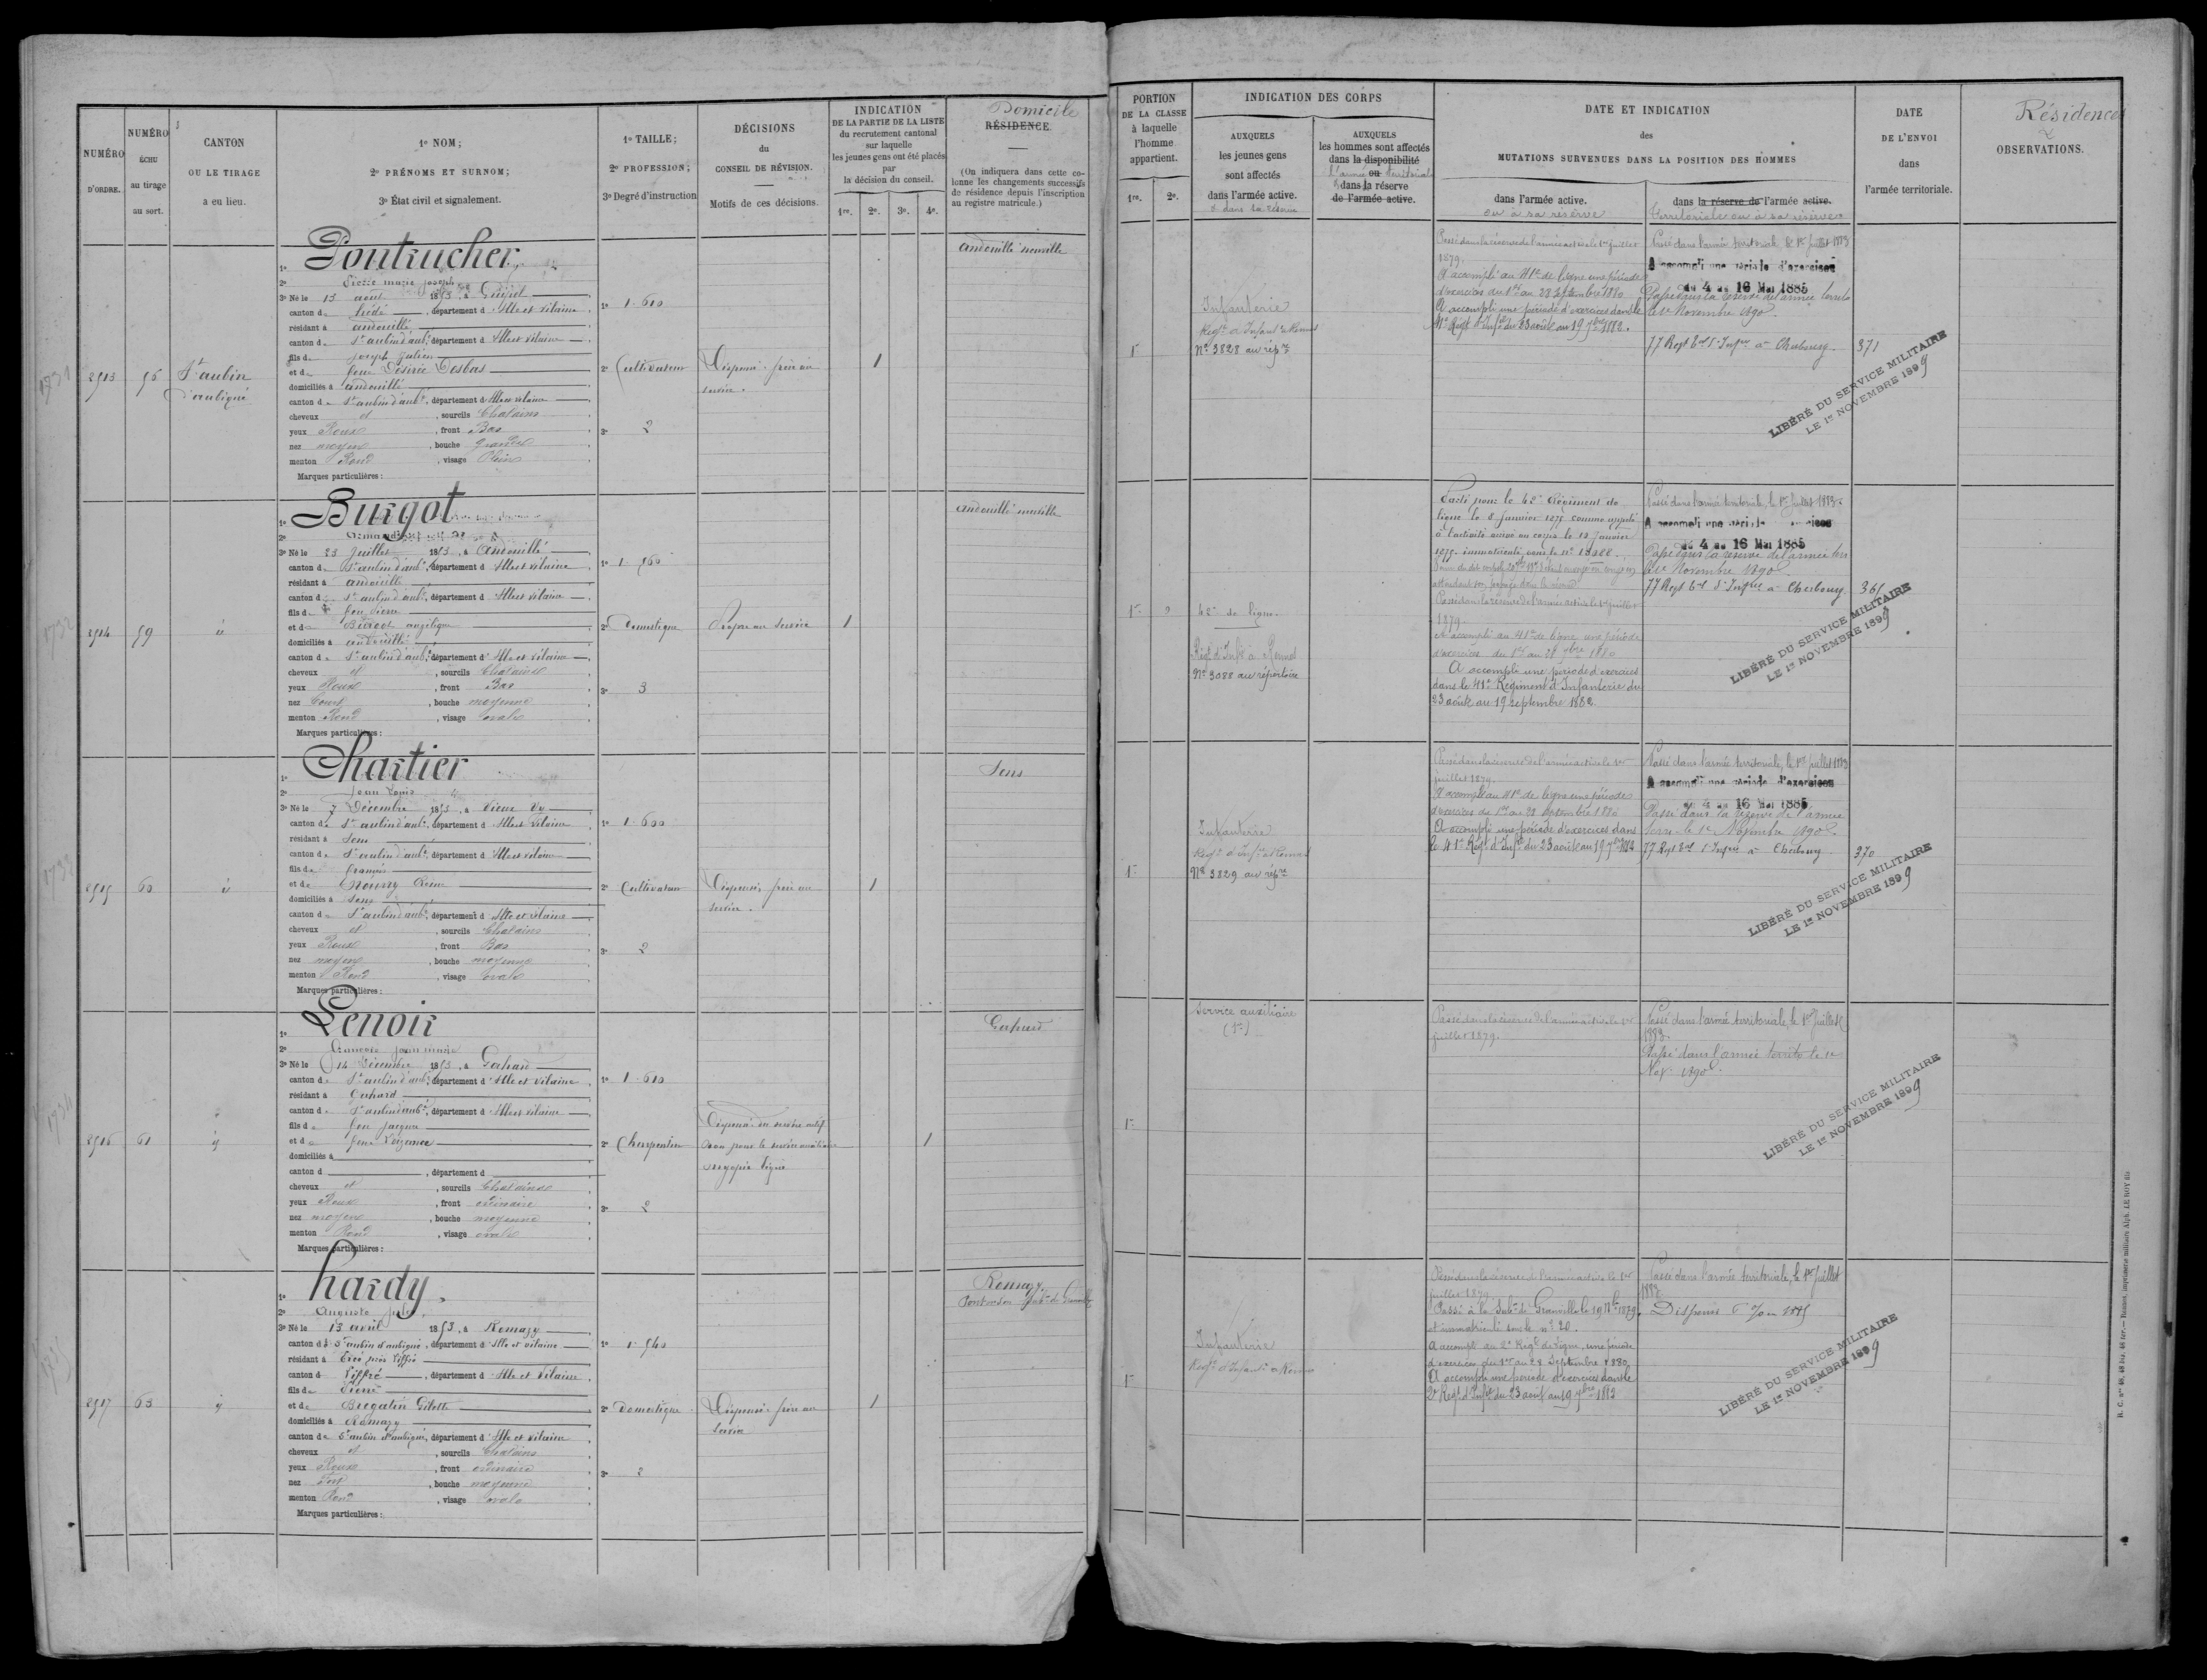 NUMÉRO
D'ORDRE.
NUMÉRO
ÉCHU
au tirage
au sort.
CANTON
OU LE TIRAGE
a eu lieu.
1º NOM;
2º PRÉNOMS ET SURNOM;
3º État civil et signalement.
1º TAILLE;
2º PROFESSION;
3º Degré d'instruction
DÉCISIONS
du
CONSEIL DE RÉVISION.
Motifs de ces décisions.
INDICATION
DE LA PARTIE DE LA LISTE
du recrutement cantonal
sur laquelle
les jeunes gens ont été placés
par
la décision du conseil.
1re. 2e. 3e. 4e.
Domicile
RÉSIDENCE.
(On indiquera dans cette co-
lonne les changements successifs
de résidence depuis l'inscription
au registre matricule.)
PORTION
DE LA CLASSE
à laquelle
l'homme
appartient.
1re. 2e.
INDICATION DES CORPS
AUXQUELS
les jeunes gens
sont affectés
dans l'armée active.
& dans sa réserve
AUXQUELS
les hommes sont affectés
dans la disponibilité
ou
l'armée territoriale
dans la réserve
de l'armée active.
DATE ET INDICATION
des
MUTATIONS SURVENUES DANS LA POSITION DES HOMMES
dans l'armée active.
ou à sa réserve
dans la réserve de l'armée active.
territoriale ou à sa réserve
DATE
DE L'ENVOI
dans
l'armée territoriale.
Résidences
&
OBSERVATIONS.
1731
2913
56
St aubin
d'aubigné
1º Pontrucher
2º Pierre marie joseph
3º Né le 13 août 1853, à Guipel
canton de hédé, département d Ille et vilaine
résidant à andouillé
canton de St aubin d'aub., département d Ille et vilaine
fils de Joseph Julien
et de feue Désirée Desbas
domiciliés à andouillé
canton de St aubin d'aub., département d Ille et vilaine
cheveux et, sourcils Chatains
yeux Roux, front Bas
nez moyen, bouche grande
menton Rond, visage Plein
Marques particulières:
1º 1.610
2º Cultivateur
3º 2
Dispensé frère au
service.
1
andouillé neuville
1re
Infanterie
Regt d'Infant de Rennes
Nº 3828 au répre
Passé dans la réserve de l'armée active le 1er juillet
1879.
A accompli au 41e de ligne une période
d'exercices du 1er au 28 septembre 1880
A accompli une période d'exercices dans le
41e Régt d'Infie du 23 août au 19 7bre 1882.
Passé dans l'armée territoriale, le 1er Juillet 1883
A accompli une période d'exercices
du 4 au 16 Mai 1885
Passé dans la réserve de l'armée territ
le 1er Novembre 1890.
77 Regt Eal d'Infie à Cherbourg.
371
LIBÉRÉ DU SERVICE MILITAIRE
LE 1er NOVEMBRE 1899
1732
2914
59
id
1º Burgot
2º Armand
3º Né le 23 Juillet 1853, à Andouillé
canton de St aubin d'aub., département d Ille et vilaine
résidant à andouillé
canton de St aubin d'aub., département d Ille et vilaine
fils de feu Pierre
et de Burgot angélique
domiciliés à andouillé
canton de St aubin d'aub., département d Ille et vilaine
cheveux et, sourcils Chatains
yeux Roux, front Bas
nez Court, bouche moyenne
menton Rond, visage ovale
Marques particulières:
1º 1.560
2º Domestique
3º 3
Propre au service
1
andouillé neuville
1re 2
42e de ligne.
Régt d'Infie à Rennes
Nº 3088 au répertoire
Parti pour le 42e Régiment de
ligne le 8 Janvier 1875 comme appelé
à l'activité arrivé au corps le 12 janvier
1875. immatriculé sous le nº
attendant son passage dans la réserve
Passé dans la réserve de l'armée active le 1er juillet
1879.
A accompli au 41e de ligne une période
d'exercices du 1er au 28 7bre 1880
A accompli une période d'exercices
dans le 41e Régiment d'Infanterie du
23 août au 19 septembre 1882.
Passé dans l'armée territoriale, le 1er Juillet 1883.
A accompli une période d'exercices
du 4 au 16 Mai 1885
Passé dans la réserve de l'armée terr
le 1er Novembre 1890
77 Regt Eal d'Infie à Cherbourg
365
LIBÉRÉ DU SERVICE MILITAIRE
LE 1er NOVEMBRE 1899
1733
2915
60
id
1º Chartier
2º Jean Louis
3º Né le 7 Décembre 1853, à Vieux Vy
canton de St aubin d'aub., département d Ille et Vilaine
résidant à Sens
canton de St aubin d'aub., département d Ille et vilaine
fils de françois
et de Reine
domiciliés à Sens
canton de St aubin d'aub., département d Ille et vilaine
cheveux et, sourcils Chatains
yeux Roux, front Bas
nez moyen, bouche moyenne
menton Rond, visage ovale
Marques particulières:
1º 1.600
2º Cultivateur
3º 2
Dispensé frère au
service.
1
Sens
1re
Infanterie
Regt d'Infie à Rennes
Nº 3829 au répre
Passé dans la réserve de l'armée active le 1er
juillet 1879.
A accompli au 41e de ligne une période
d'exercices du 1er au 28 septembre 1880
A accompli une période d'exercices dans
le 41e Régt d'Infie du 23 août au 19 7bre 1882
Passé dans l'armée territoriale, le 1er juillet 1883
A accompli une période d'exercices
du 4 au 16 Mai 1885
Passé dans la réserve de l'armée
terre le 1er Novembre 1890.
77 Regt Eal d'Infie à Cherbourg
370
LIBÉRÉ DU SERVICE MILITAIRE
LE 1er NOVEMBRE 1899
1734
2916
61
id
1º Lenoir
2º François jean marie
3º Né le 14 Décembre 1853, à Gahard
canton de St aubin d'aub., département d Ille et vilaine
résidant à Gahard
canton de St aubin d'aub., département d Ille et vilaine
fils de feu jacques
et de feue
domiciliés à
canton d, département d
cheveux et, sourcils Chatains
yeux Roux, front ordinaire
nez moyen, bouche moyenne
menton Rond, visage ovale
Marques particulières:
1º 1.610
2º Charpentier
3º 2
Dispensé du service actif
Bon pour le service auxiliaire
myopie légère
1
Gahard
1re
Service auxiliaire
(1re)
Passé dans la réserve de l'armée active le 1er
juillet 1879.
Passé dans l'armée territoriale, le 1er Juillet
1883.
Passé dans l'armée territ le 1er
Nov. 1890.
LIBÉRÉ DU SERVICE MILITAIRE
LE 1er NOVEMBRE 1899
2917
63
id
1º hardy.
2º Auguste jules
3º Né le 13 avril 1853, à Romazy
canton de St aubin d'aubigné, département d Ille et vilaine
résidant à Ercé près Liffré
canton d Liffré, département d Ille et Vilaine
fils de Pierre
et de Bregatin Gilette
domiciliés à Romazy
canton de St aubin d'aubigné, département d Ille et vilaine
cheveux et, sourcils Chatains
yeux Roux, front ordinaire
nez fort, bouche moyenne
menton Rond, visage ovale
Marques particulières:
1º 1.540
2º Domestique
3º 2
Dispensé frère au
service
1
Romazy
Pontorson Subon de Granville
1re
Infanterie
Regt d'Infant à Rennes
Passé dans la réserve de l'armée active le 1er
juillet 1879
Passé à la Subon de Granville le 19 1879.
et immatriculé sous le nº 20.
A accompli au 2e Régt de ligne, une période
d'exercices du 1er au 28 Septembre 1880.
A accompli une période d'exercices dans le
2e Régt d'Infie du 23 août au 19 7bre 1882
Passé dans l'armée territoriale, le 1er Juillet
1883.
Dispensé 1885
LIBÉRÉ DU SERVICE MILITAIRE
LE 1er NOVEMBRE 1899